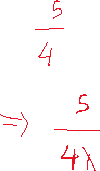 5
4
⇒ 5
4λ